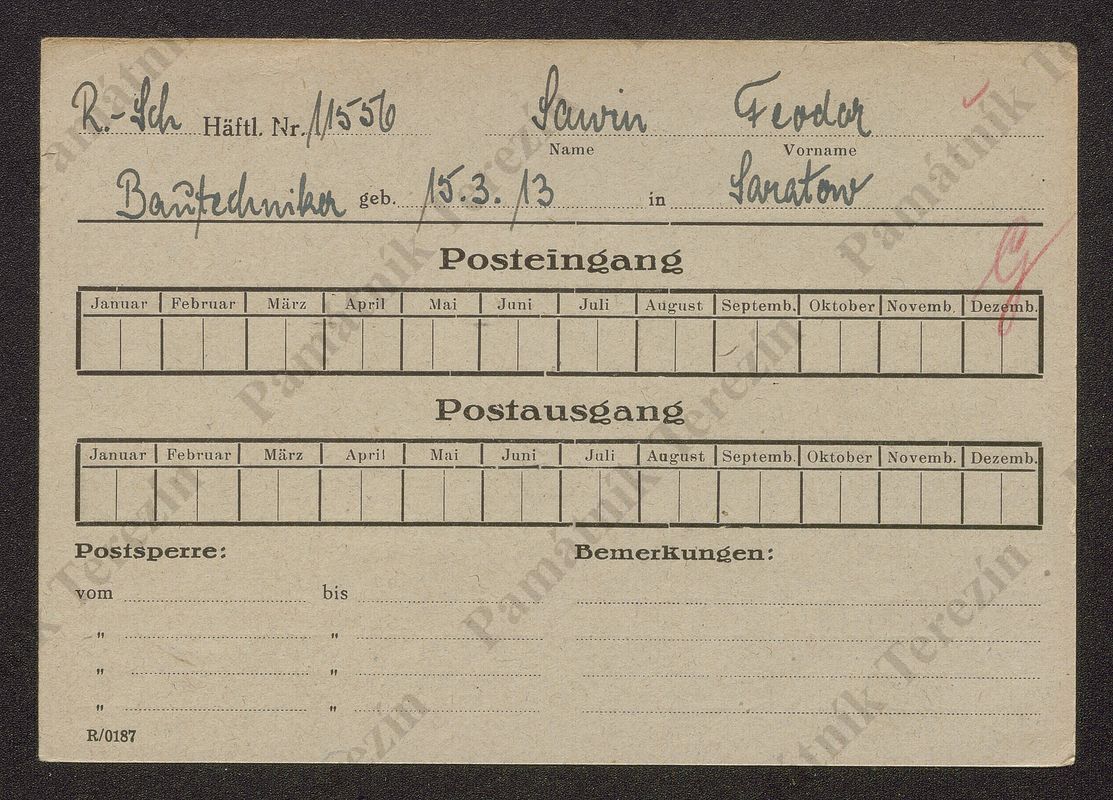 R.-Sch Häftl. Nr. 11556 Sawin Feodor
Name Vorname
Bautechniker geb. 15.3.13 in Saratow
G
Posteingang
Januar Februar März April Mai Juni Juli August Septemb. Oktober Novemb. Dezemb.
Postausgang
Januar Februar März April Mai Juni Juli August Septemb. Oktober Novemb. Dezemb.
Postsperre: Bemerkungen:
vom bis
" "
" "
" "
R/0187
Památník Terezín